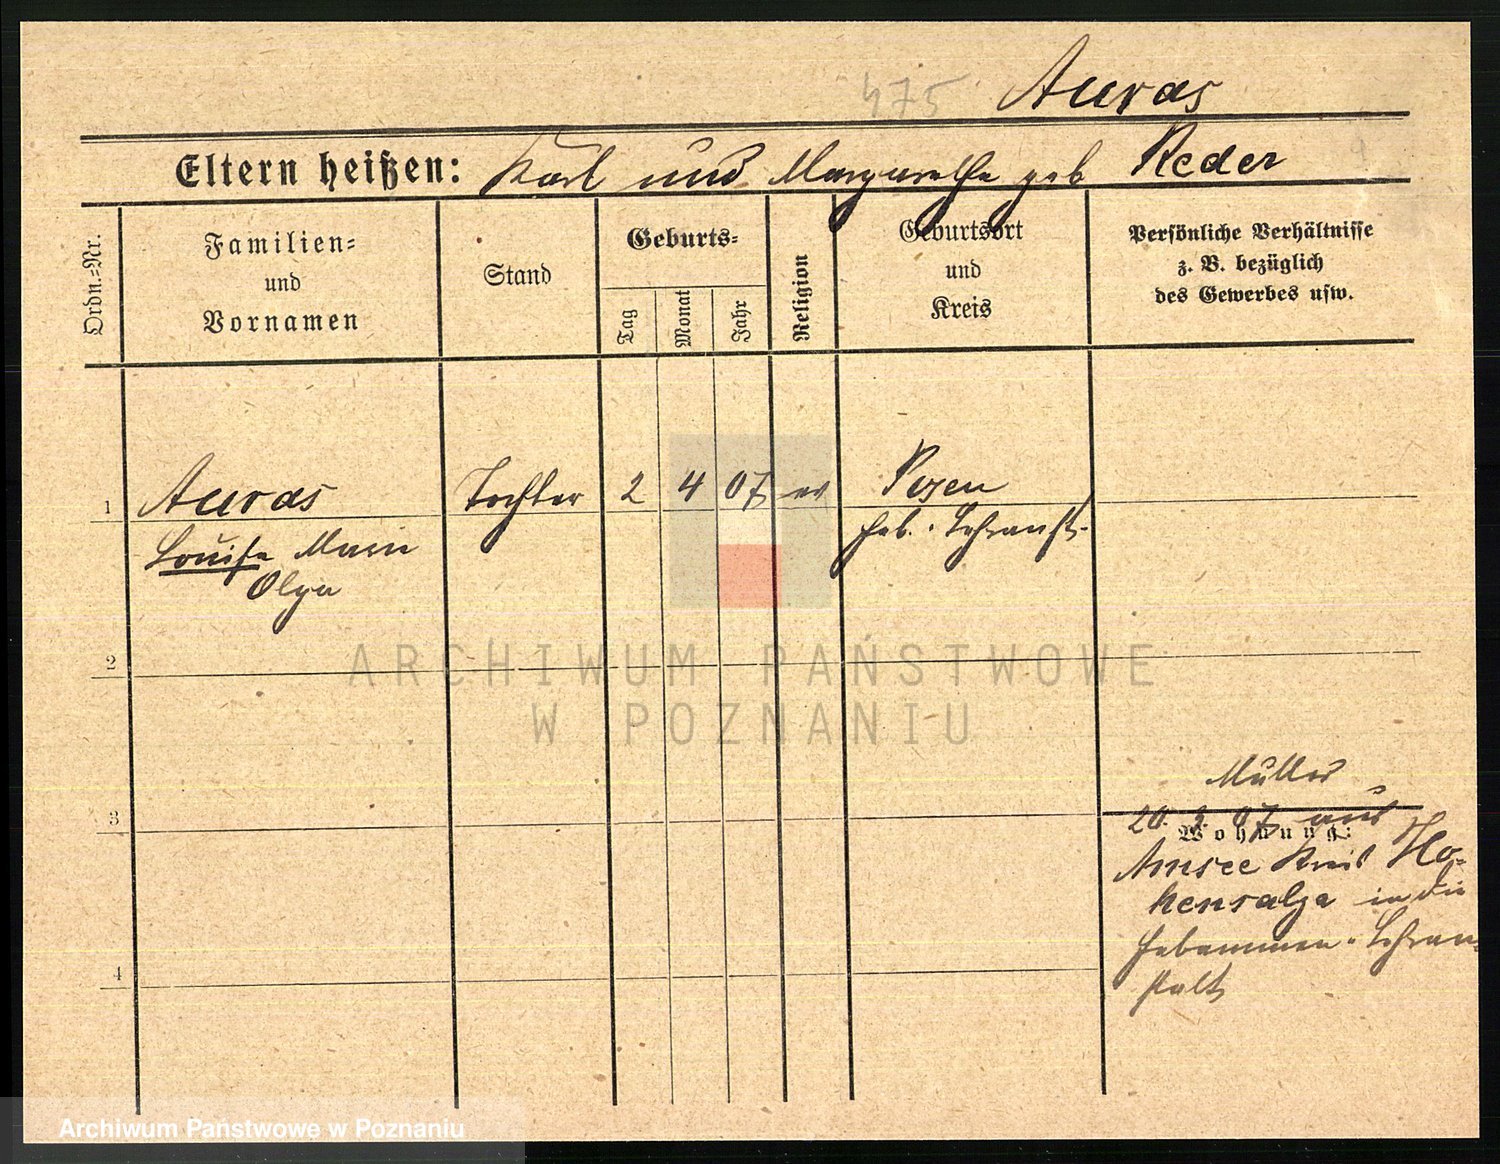 475 Auras
Eltern heißen: Karl und Margarethe geb Reder
Ordn.-Nr.
Familien-
und
Vornamen
Stand
Geburts-
Tag
Monat
Jahr
Religion
Geburtsort
und
Kreis
Persönliche Verhältnisse
z. B. bezüglich
des Gewerbes usw.
1 Auras Tochter 2 4 07 ev Posen
Louise Marie
Olga
Heb. Lehranst.
2
ARCHIWUM PAŃSTWOWE
W POZNANIU
3
Mutter
20. 3. 07 aus
Wohnung:
Amsee Kreis Ho-
hensalza in die
Hebammen-Lehran-
stalt
4
Archiwum Państwowe w Poznaniu